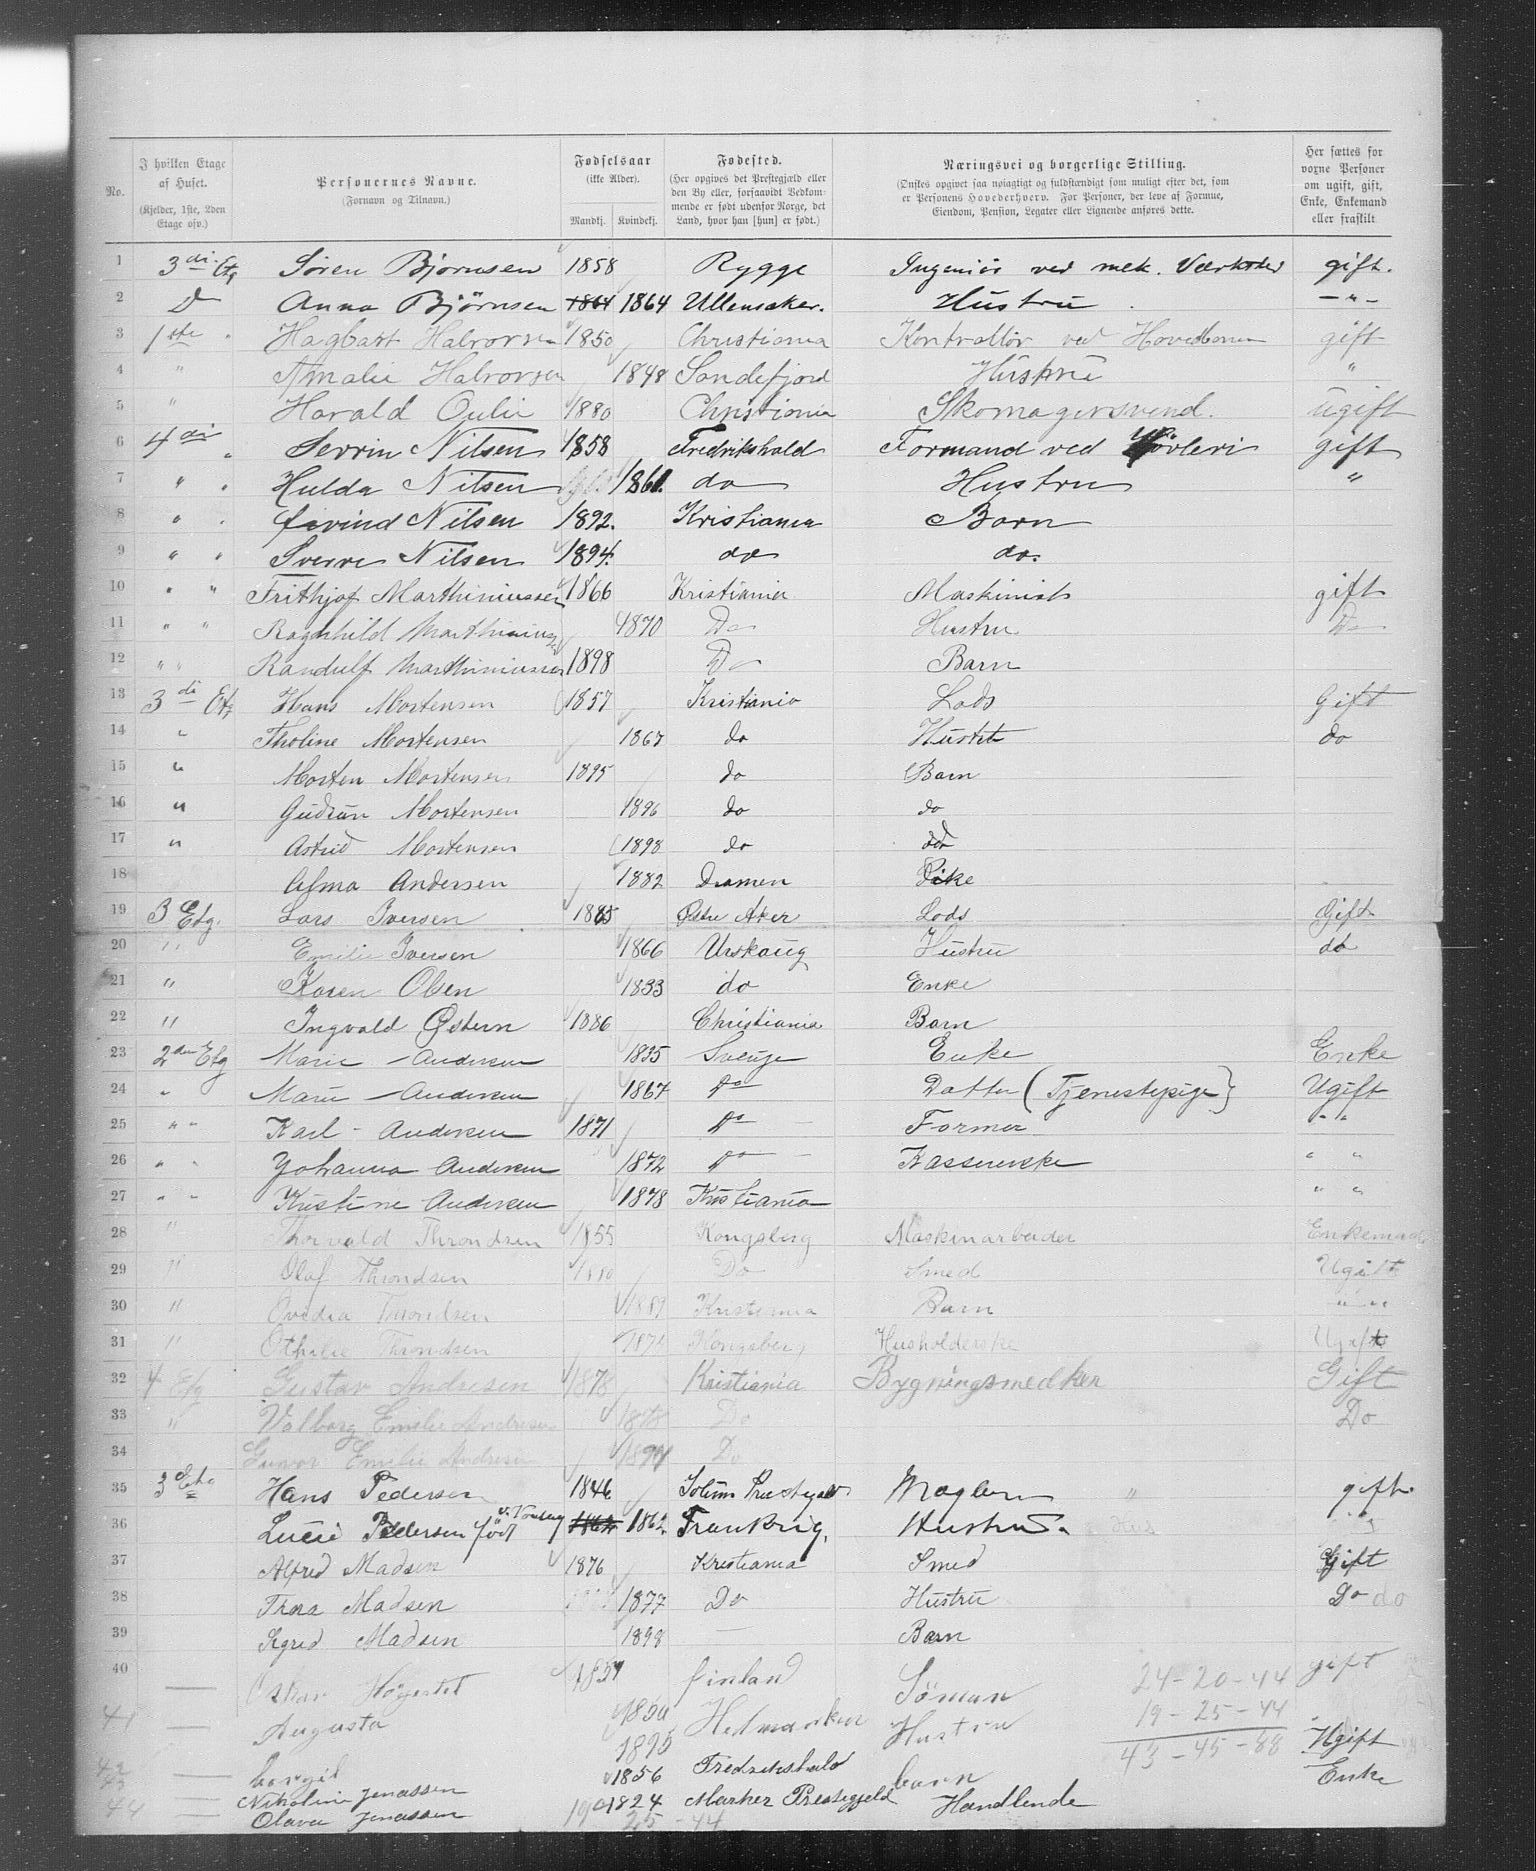 No. I hvilken Etage af Huset. (Kjelder, 1ste, 2den Etage osv.) Personernes Navne. (Fornavn og Tilnavn.) Fødselsaar (ikke Alder). Mandkj. Kvindekj. Fødested. (Her opgives det Prestegjæld eller den By eller, forsaavidt Vedkommende er født udenfor Norge, det Land, hvor han [hun] er født.) Næringsvei og borgerlige Stilling. (Ønskes opgivet saa nøiagtigt og fuldstændigt som muligt efter det, som er Personens Hovederhverv. For Personer, der leve af Formue, Eiendom, Pension, Legater eller Lignende anføres dette. Her sættes for voxne Personer om ugift, gift, Enke, Enkemand eller fraskilt
1 3 di Etg Søren Bjørnsen 1858 Rygge Ingeniör ved mek. Værksted gift.
2 D Anna Bjørnsen 1864 1864 Ullensaker. Hustru — " —
3 1ste " Hagbart Halvorsen 1850 Christiania Kontrollör ved gift
4 " Amalie Halvorsen 1848 Sandefjord Hustru "
5 " Harald Oulie 1880 Christiania Skomagersvend. Ugift
6 4 di " Sevrin Nilsen 1858 Fredrikshald Formand ved Høvleri gift
7 " " Hulda Nilsen 1861. do Hustru "
8 " " Øivind Nilsen 1892. Kristiania Barn
9 " " Sverre Nilsen 1894. do do.
10 " " Frithjof Marthiniussen 1866 Kristiania Maskinist gift
11 " " Ragnhild Marthiniuss 1870 Do Hustru Do
12 " " Randulf Marthiniussen 1898 Do Barn
13 3 di Etg Hans Mortensen 1857 Kristiania Lods Gift
14 " Tholine Mortensen 1867 do Hustru do
15 " Morten Mortensen 1895 do Barn
16 " Gudrun Mortensen 1896 do do
17 " Astrid Mortensen 1898 do do
18 Alma Andersen 1882 Dramen Pike
19 3 Etg. Lars Iversen 1865 Østre Aker Lods Gift
20 " Emilie Iversen 1866 Urskoug Hustru do
21 " Karen Olsen 1833 do Enke
22 " Ingvald Østern 1886 Christiania Barn
23 2den Etg Marie Andersen 1835 Sverige Enke Enke
24 " Marie Andersen 1867 Do Datter (Tjenestepige) Ugift
25 " " Karl Andersen 1871 Do Former " "
26 " " Johanna Andersen 1872 Do Kassererske " "
27 " " Kristine Andersen 1878 Kristiania " "
28 " Thorvald Throndsen 1855 Kongsberg Maskinarbeider Enkemand
29 " Olaf Throndsen 1880 Do Smed Ugift
30 " Ovedia Throndsen 1889 Kristiania Barn " "
31 " Othilie Throndsen Kongsberg Husholderske Ugift
32 4 Etg Gustav Andresen 1878 Kristiania Bygningsmedker Gift
33 " Valborg Emilie Andresen 1878 Do Do
34 Gunvor Emilie Andresen Do
35 3 Etg Hans Pedersen 1846 Solum Prestegjeld Mægler " gift.
36 Lucie Pedersen født 1862 1862. Frankrig, Hustru. "
37 Alfred Madsen 1876 Kristiania Smed Gift
38 Thora Madsen 1877 Do Hustru Do do
39 Sigrid Madsen 1898 — Barn
40 — Oskar 1857 finland Söman gift
24-20-44
41 — Augusta 1850 Hustru
19-25-44
43-45-88
42 — 1895 barn
43 — Nikoline Jenassen 1856 Fredrikshald Ugift
44 — Olava Jenassen 1824 Marker Prestegjeld Handlende Enke
19 25 - 44